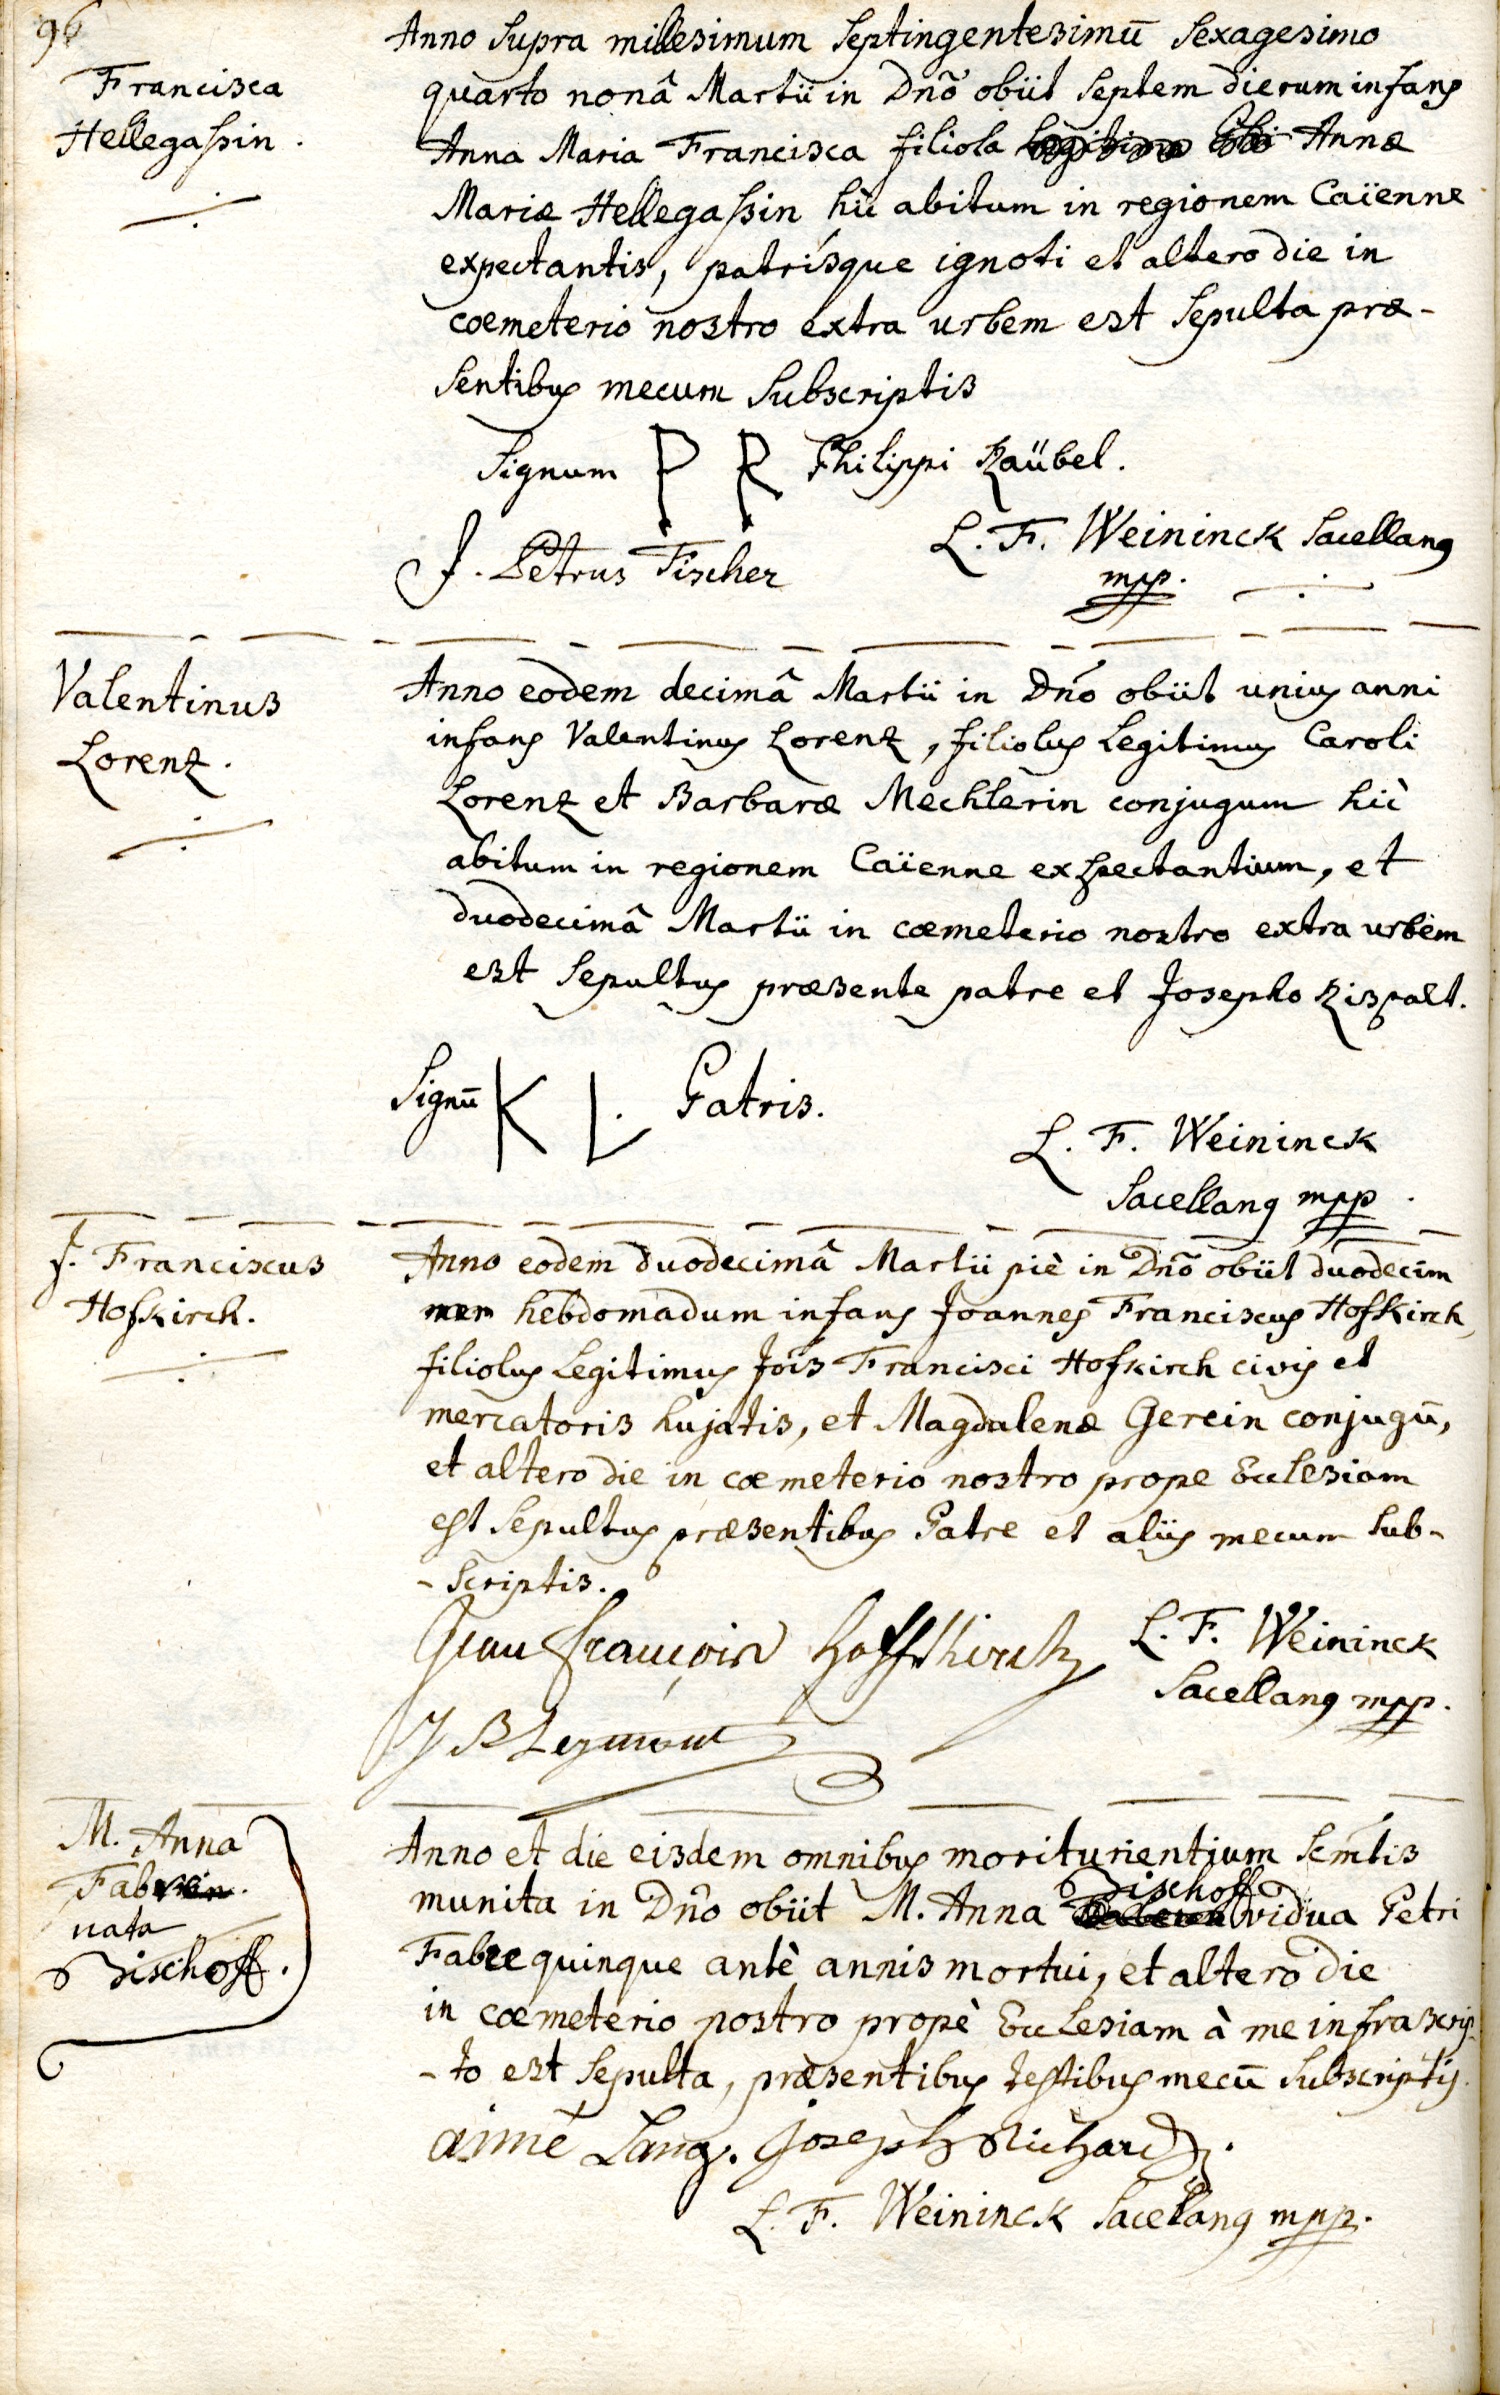 96
Francisca
Hellegaßin.
Anno supra millesimum septingentesimū sexagesimo
quarto nonâ Martii in Dnō obiit septem dierum infans
Anna Maria Francisca filiola Annæ
Mariæ Hellegaßin hìc abitum in regionem Caïenne
expectantis, patrisque ignoti et altero die in
coemeterio nostro extra urbem est sepulta præ-
sentibus mecum subscriptis
Signum P R Philippi Raübel.
J. Petrus Fischer
L. F. Weininck Sacellanus
mpp.
Valentinus
Lorenz.
Anno eodem decimâ Martii in Dno obiit unius anni
infans Valentinus Lorenz, filiolus legitimus Caroli
Lorenz et Barbaræ Mechlerin conjugum hìc
abitum in regionem Caïenne exspectantium, et
duodecimâ Martii in cœmeterio nostro extra urbem
est sepultus præsente patre et Josepho Rispalt.
Signū K L. Patris.
L. F. Weininck
Sacellanus mpp.
J. Franciscus
Hofkirch.
Anno eodem duodecimâ Martii piè in Dnō obiit duodecim
hebdomadum infans Joannes Franciscus Hofkirch,
filiolus legitimus Jois Francisci Hofkirch civis et
mercatoris hujatis, et Magdalenæ Gerein conjugū,
et altero die in cœmeterio nostro prope Ecclesiam
est sepultus præsentibus Patre et aliis mecum sub-
-scriptis.
Jean françois hoffkirch
L. F. Weininck
Sacellanus mpp.
J B
M. Anna
nata
Bischoff.
Anno et die eisdem omnibus moriturientium Semtis
munita in Dno obiit M. Anna Bischoff vidua Petri
Fabre quinque antè annis mortui, et altero die
in cœmeterio nostro propè Ecclesiam à me infrascrip-
-to est sepulta, præsentibus testibus mecū subscriptis.
aimé Lang. Joseph Richard.
L. F. Weininck Sacellanus mpp.